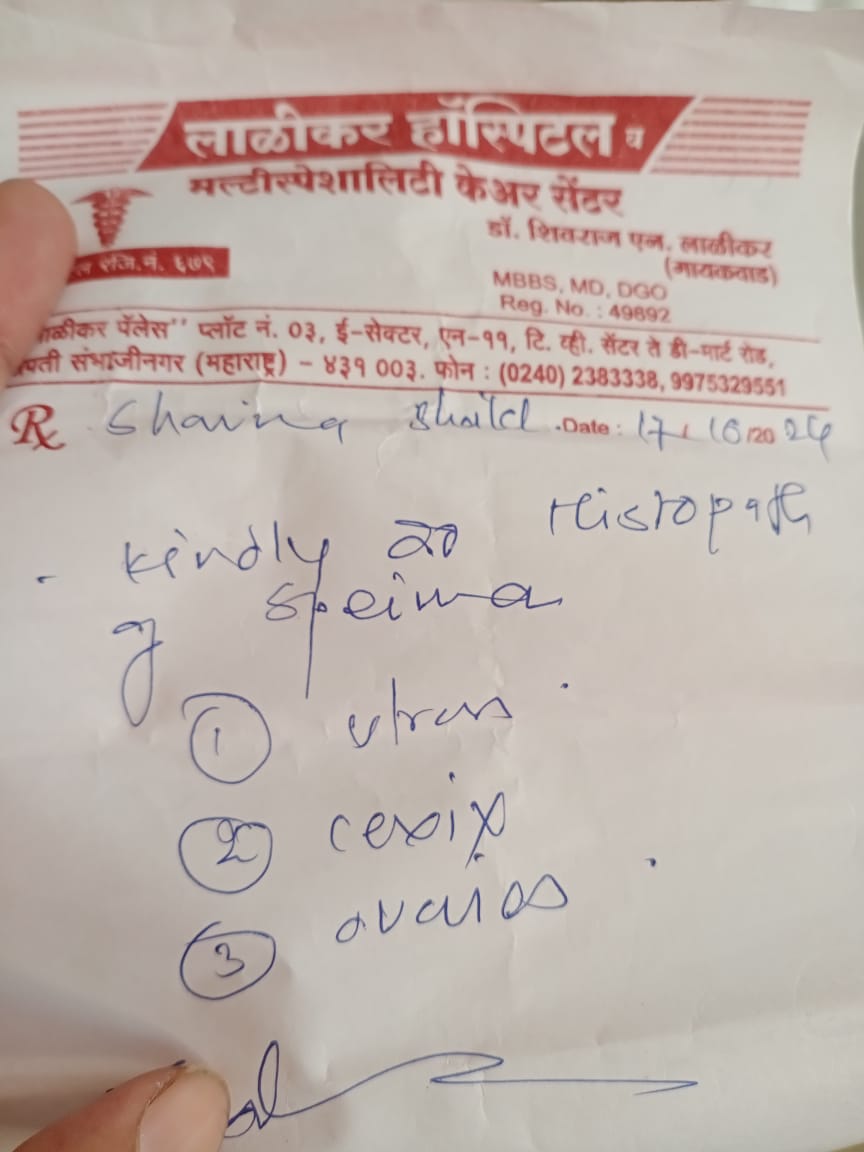 लाळीकर हॉस्पिटल व
मल्टीस्पेशालिटी केअर सेंटर
डॉ. शिवराज एन. लाळीकर
(गायकवाड)
रजि.नं. ६७९
MBBS, MD, DGO
Reg. No. : 49892
ळीकर पॅलेस" प्लॉट नं. ०३, ई-सेक्टर, एन-११, टि. व्ही. सेंटर ते डी-मार्ट रोड,
पती संभाजीनगर (महाराष्ट्र) - ४३१ 003. फोन : (0240) 2383338, 9975329551
Rx Date : 17/10/2024
- Kindly do Histopath
of
1 utrus
2 cervix
3 ovaries